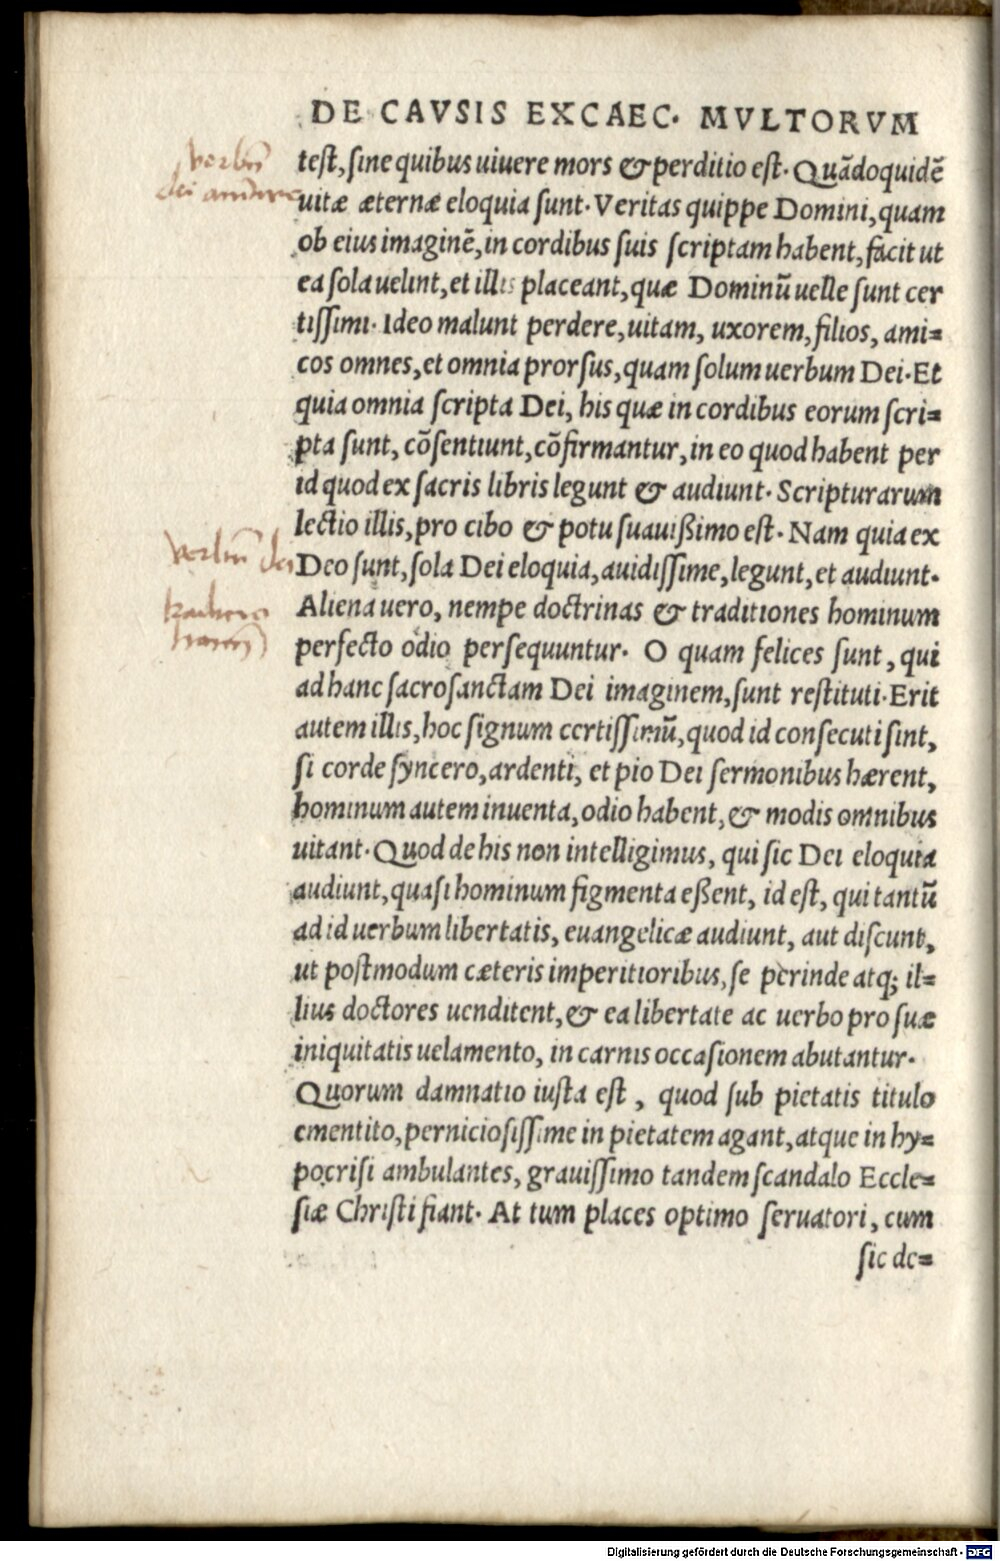 DE CAVSIS EXCAEC. MVLTORVM
verbũ
dei
test, sine quibus uiuere mors & perditio est. Quãdoquidẽ
uitæ æternæ eloquia sunt. Veritas quippe Domini, quam
ob eius imaginẽ, in cordibus suis scriptam habent, facit ut
ea sola uelint, et illis placeant, quæ Dominũ uelle sunt cer
tissimi. Ideo malunt perdere, uitam, uxorem, filios, ami=
cos omnes, et omnia prorsus, quam solum uerbum Dei. Et
quia omnia scripta Dei, his quæ in cordibus eorum scri=
pta sunt, cõsentiunt, cõfirmantur, in eo quod habent per
id quod ex sacris libris legunt & audiunt. Scripturarum
lectio illis, pro cibo & potu suauißimo est. Nam quia ex
verbũ dei
Deo sunt, sola Dei eloquia, auidissime, legunt, et audiunt.
Aliena uero, nempe doctrinas & traditiones hominum
perfecto odio persequuntur. O quam felices sunt, qui
ad hanc sacrosanctam Dei imaginem, sunt restituti. Erit
autem illis, hoc signum certissimũ, quod id consecuti sint,
si corde syncero, ardenti, et pio Dei sermonibus hærent,
hominum autem inuenta, odio habent, & modis omnibus
uitant. Quod de his non intelligimus, qui sic Dei eloquia
audiunt, quasi hominum figmenta eßent, id est, qui tantũ
ad id uerbum libertatis, euangelicæ audiunt, aut discunt,
ut postmodum cæteris imperitioribus, se perinde atq; il=
lius doctores uenditent, & ea libertate ac uerbo pro suæ
iniquitatis uelamento, in carnis occasionem abutantur.
Quorum damnatio iusta est, quod sub pietatis titulo
ementito, perniciosissime in pietatem agant, atque in hy=
pocrisi ambulantes, grauissimo tandem scandalo Eccle=
siæ Christi fiant. At tum places optimo seruatori, cum
sic de=
Digitalisierung gefördert durch die Deutsche Forschungsgemeinschaft - DFG